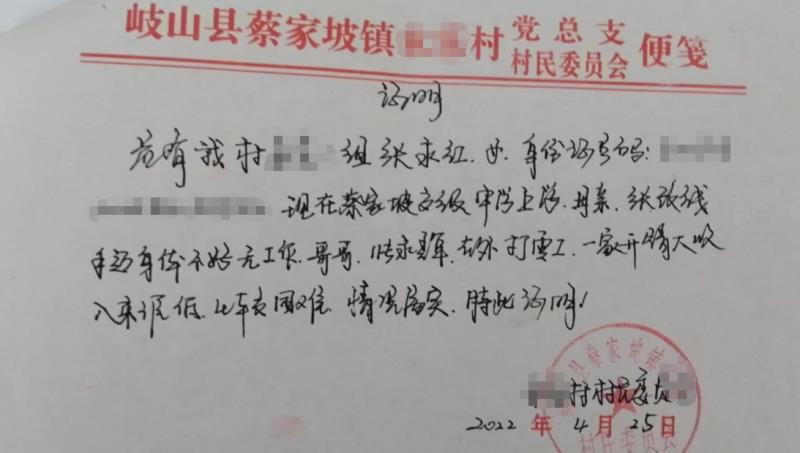 岐山县蔡家坡镇 村 党总支 村民委员会 便笺
证明
兹有我村 组张求红、女、身份证号码:
现在蔡家坡高级中学上学、母亲、张
年迈身体不好无工作、哥哥、张求军、在外打零工、一家开销大收
入来源低、比较困难、情况属实、特此证明!
村村民委员
2022 年 4 月 25 日
县蔡家坡镇
村民委员会